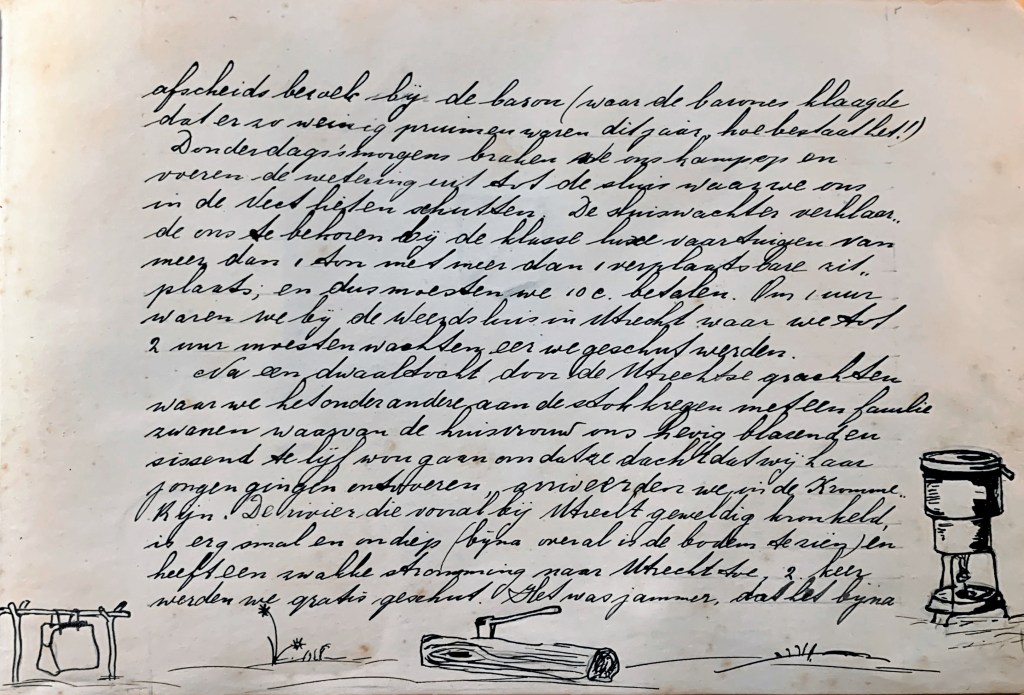 afscheids bezoek bij de baron (waar de barones klaagde
dat er zo weinig pruimen waren dit jaar, hoe bestaat het!!)
Donderdags'smorgens braken we ons kamp op en
voeren de wetering uit tot de sluis waar we ons
in de Vecht lieten schutten. De sluiswachter verklaar„
de ons te behoren bij de klasse luxe vaartuigen van
meer dan 1 ton met meer dan 1 verplaatsbare zit„
plaats, en dus moesten we 10 c. betalen. Om 1 uur
waren we bij de Weerdsluis in Utrecht waar we tot
2 uur moesten wachten, eer we geschut werden.
Na een dwaaltocht door de Utrechtse grachten
waar we het onder andere aan de stok kregen met een familie
zwanen waarvan de huisvrouw ons hevig blazend en
sissend te lijf wou gaan omdat ze dacht dat wij haar
jongen gingen ontvoeren, arriveerden we in de Kromme„
Rijn. De rivier die vooral bij Utrecht geweldig kronkeld,
is erg smal en ondiep (bijna overal is de bodem te zien) en
heeft een zwakke stroming naar Utrecht toe, 2 keer
werden we gratis geschut. Het was jammer, dat het bijna